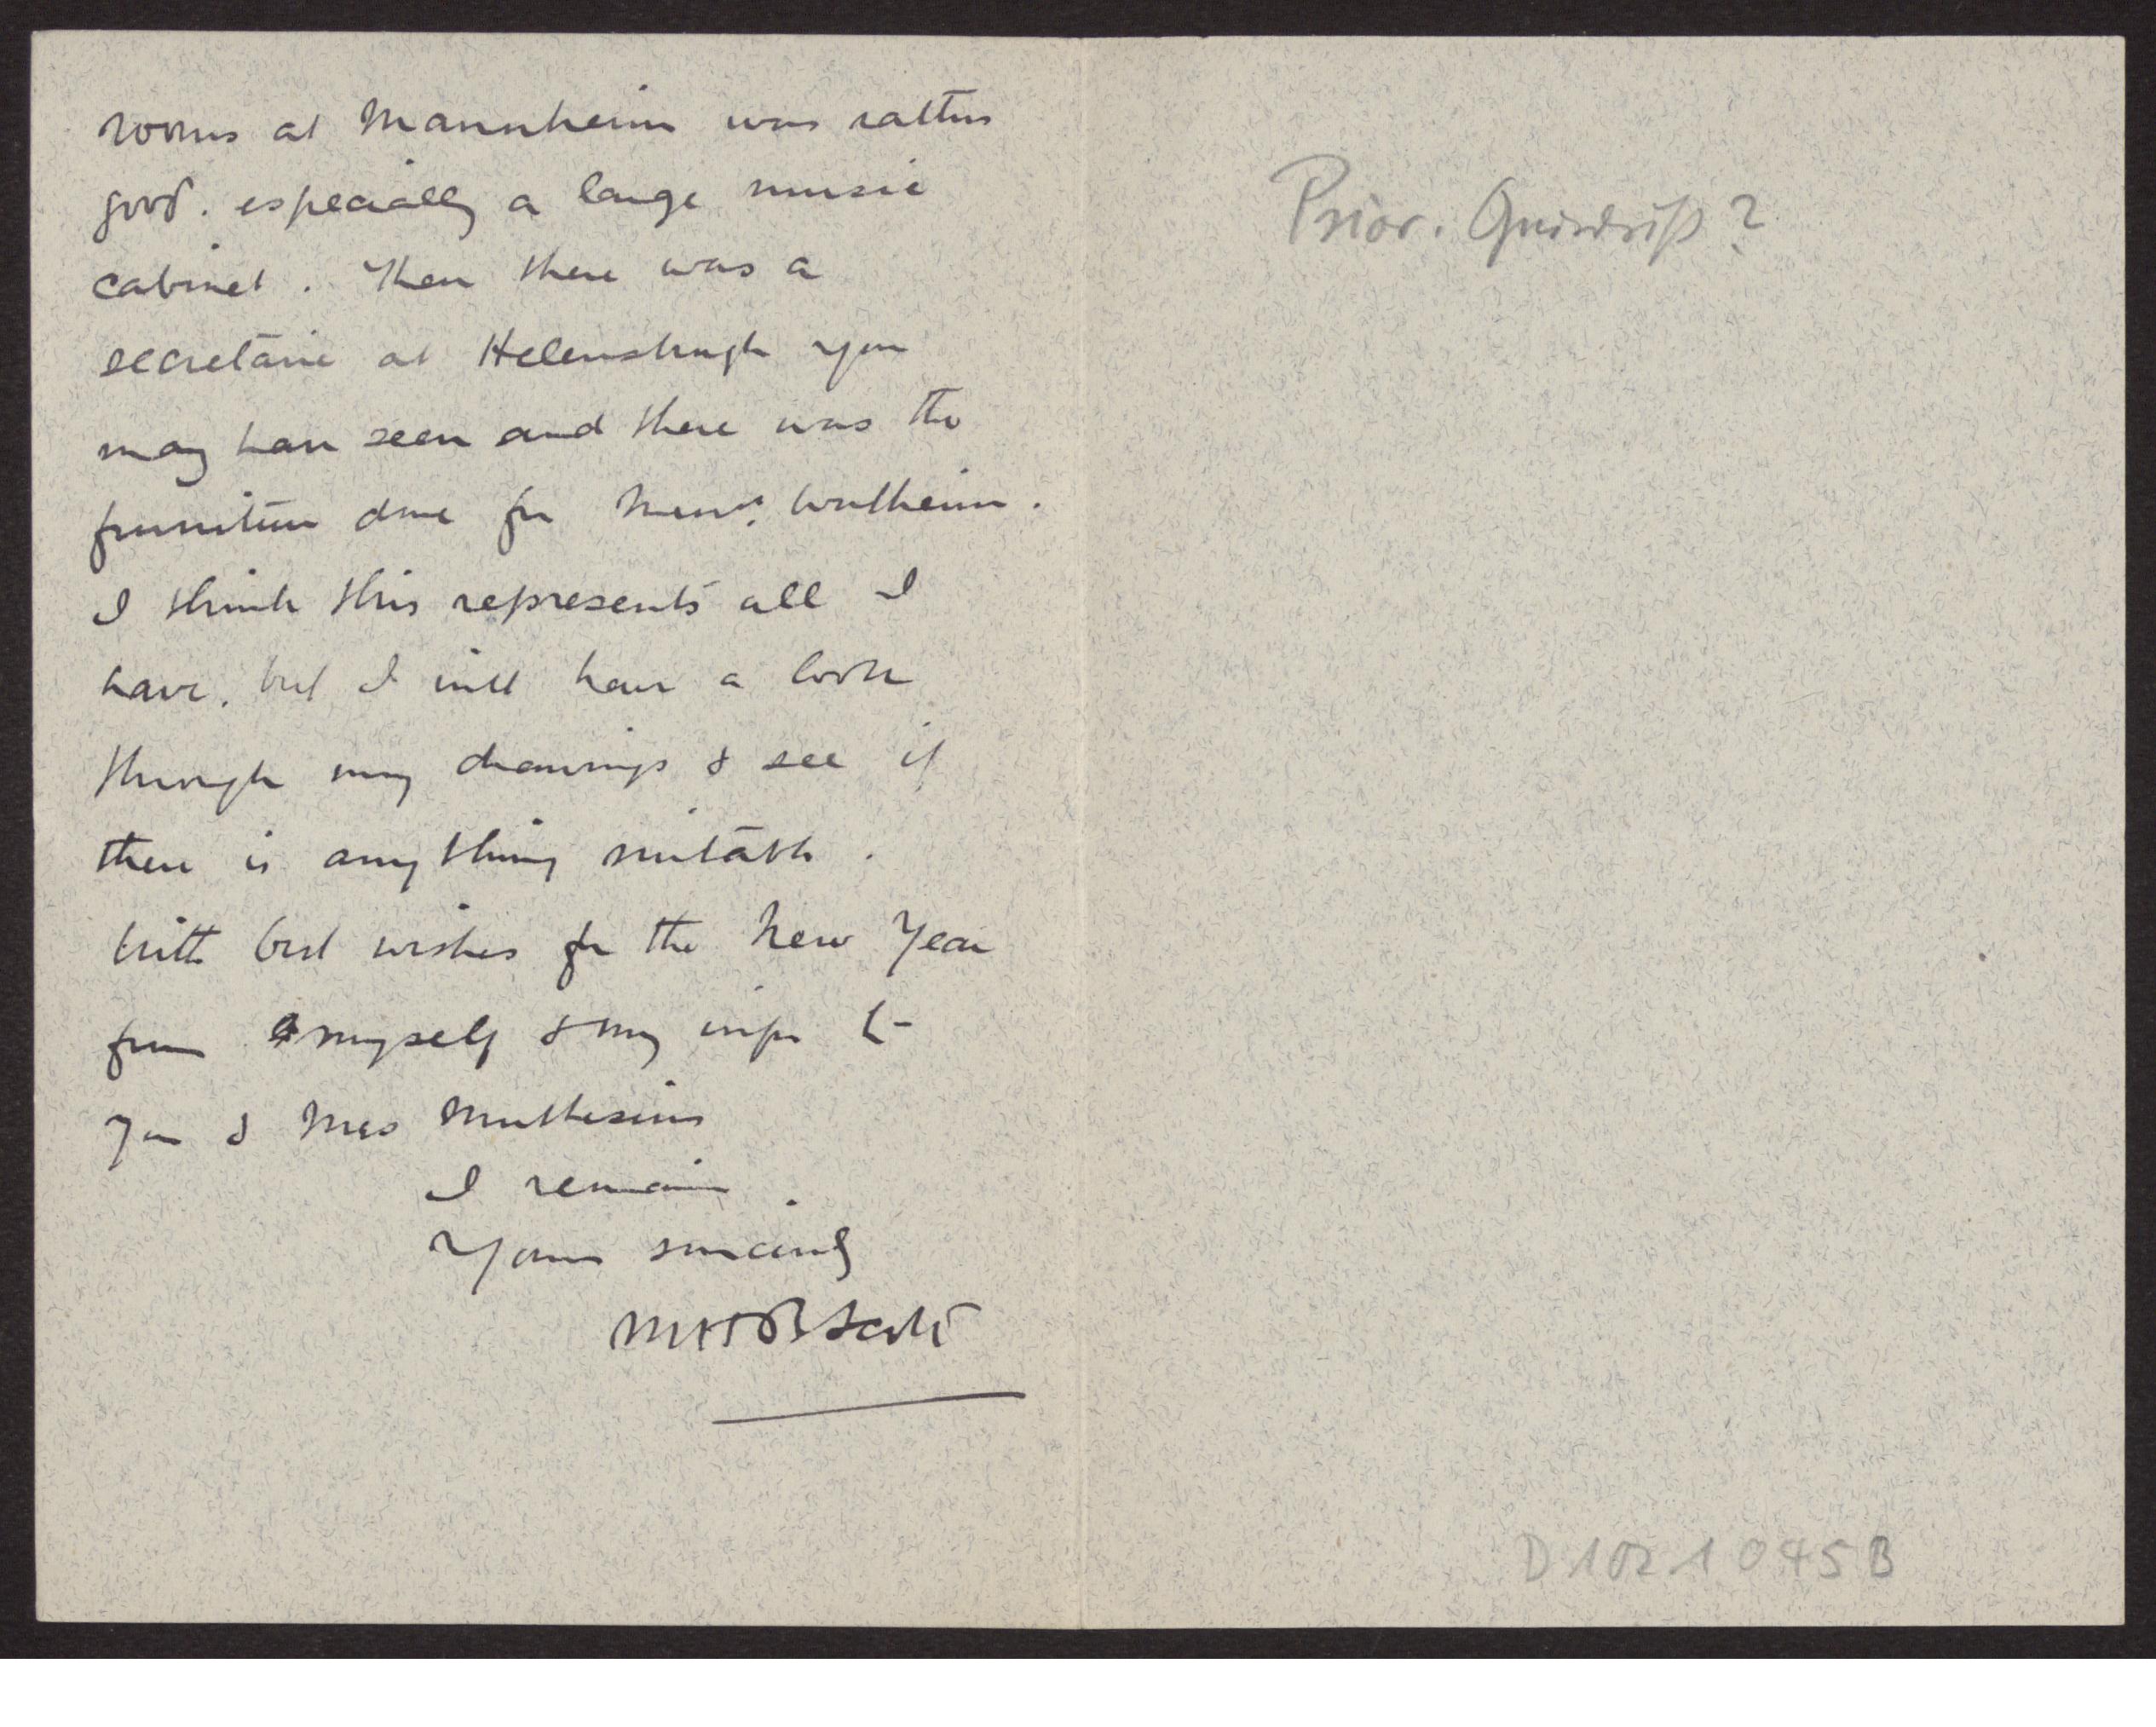 rooms at Mannheim was rather
good. especially a large music
cabinet. Then there was a
secretaire at Helensburgh you
may have seen and there was the
furniture done for Messrs. Wertheim.
I think this represents all I
have. but I will have a look
through my drawings & see if
there is anything suitable.
With best wishes for the New Year
from myself & my wife to
you & Mrs Muthesius
I remain.
Yours sincerely
MHBScott
Prior. Grundriß?
D 102 1045 B